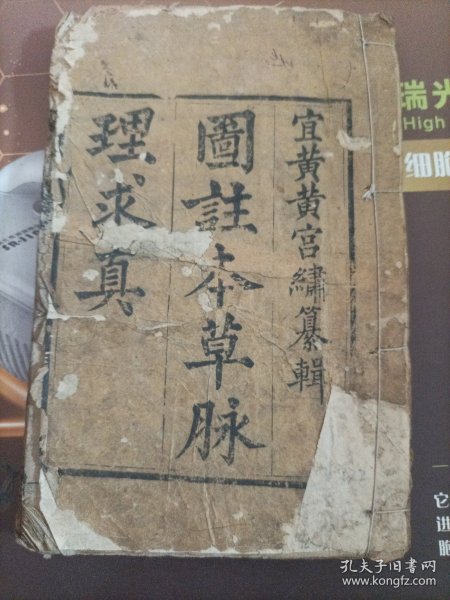 宜黄黄宫繡纂輯
圖註本草脉
理求真
瑞光
High
细胞
它
进
胞
孔夫子旧书网
www.kongfz.com